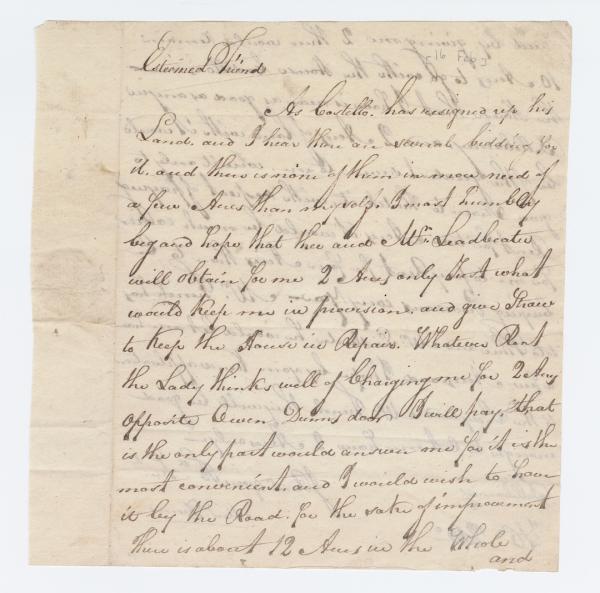 Esteemed Friend
16 Feb
As Costello. has resigned up his
Land. and I hear there are several bidding for
it. and there is nione of them in more need of
a few Acres than myself. I most humbly
beg and hope that thee and Mr. Leadbeater
will obtain for me 2 Acres only Just what
would Keep me in provision. and give Straw
to Keep the House in Repair. Whatever Rent
the Lady thinks well of Charging me for 2 Acres
Opposite Owen Dunns door I will pay, that
is the only part would answer me for it is the
most convenient. and I would wish to have
it by the Road. for the sake of improvement
There is about 12 Acres in the Whole
and